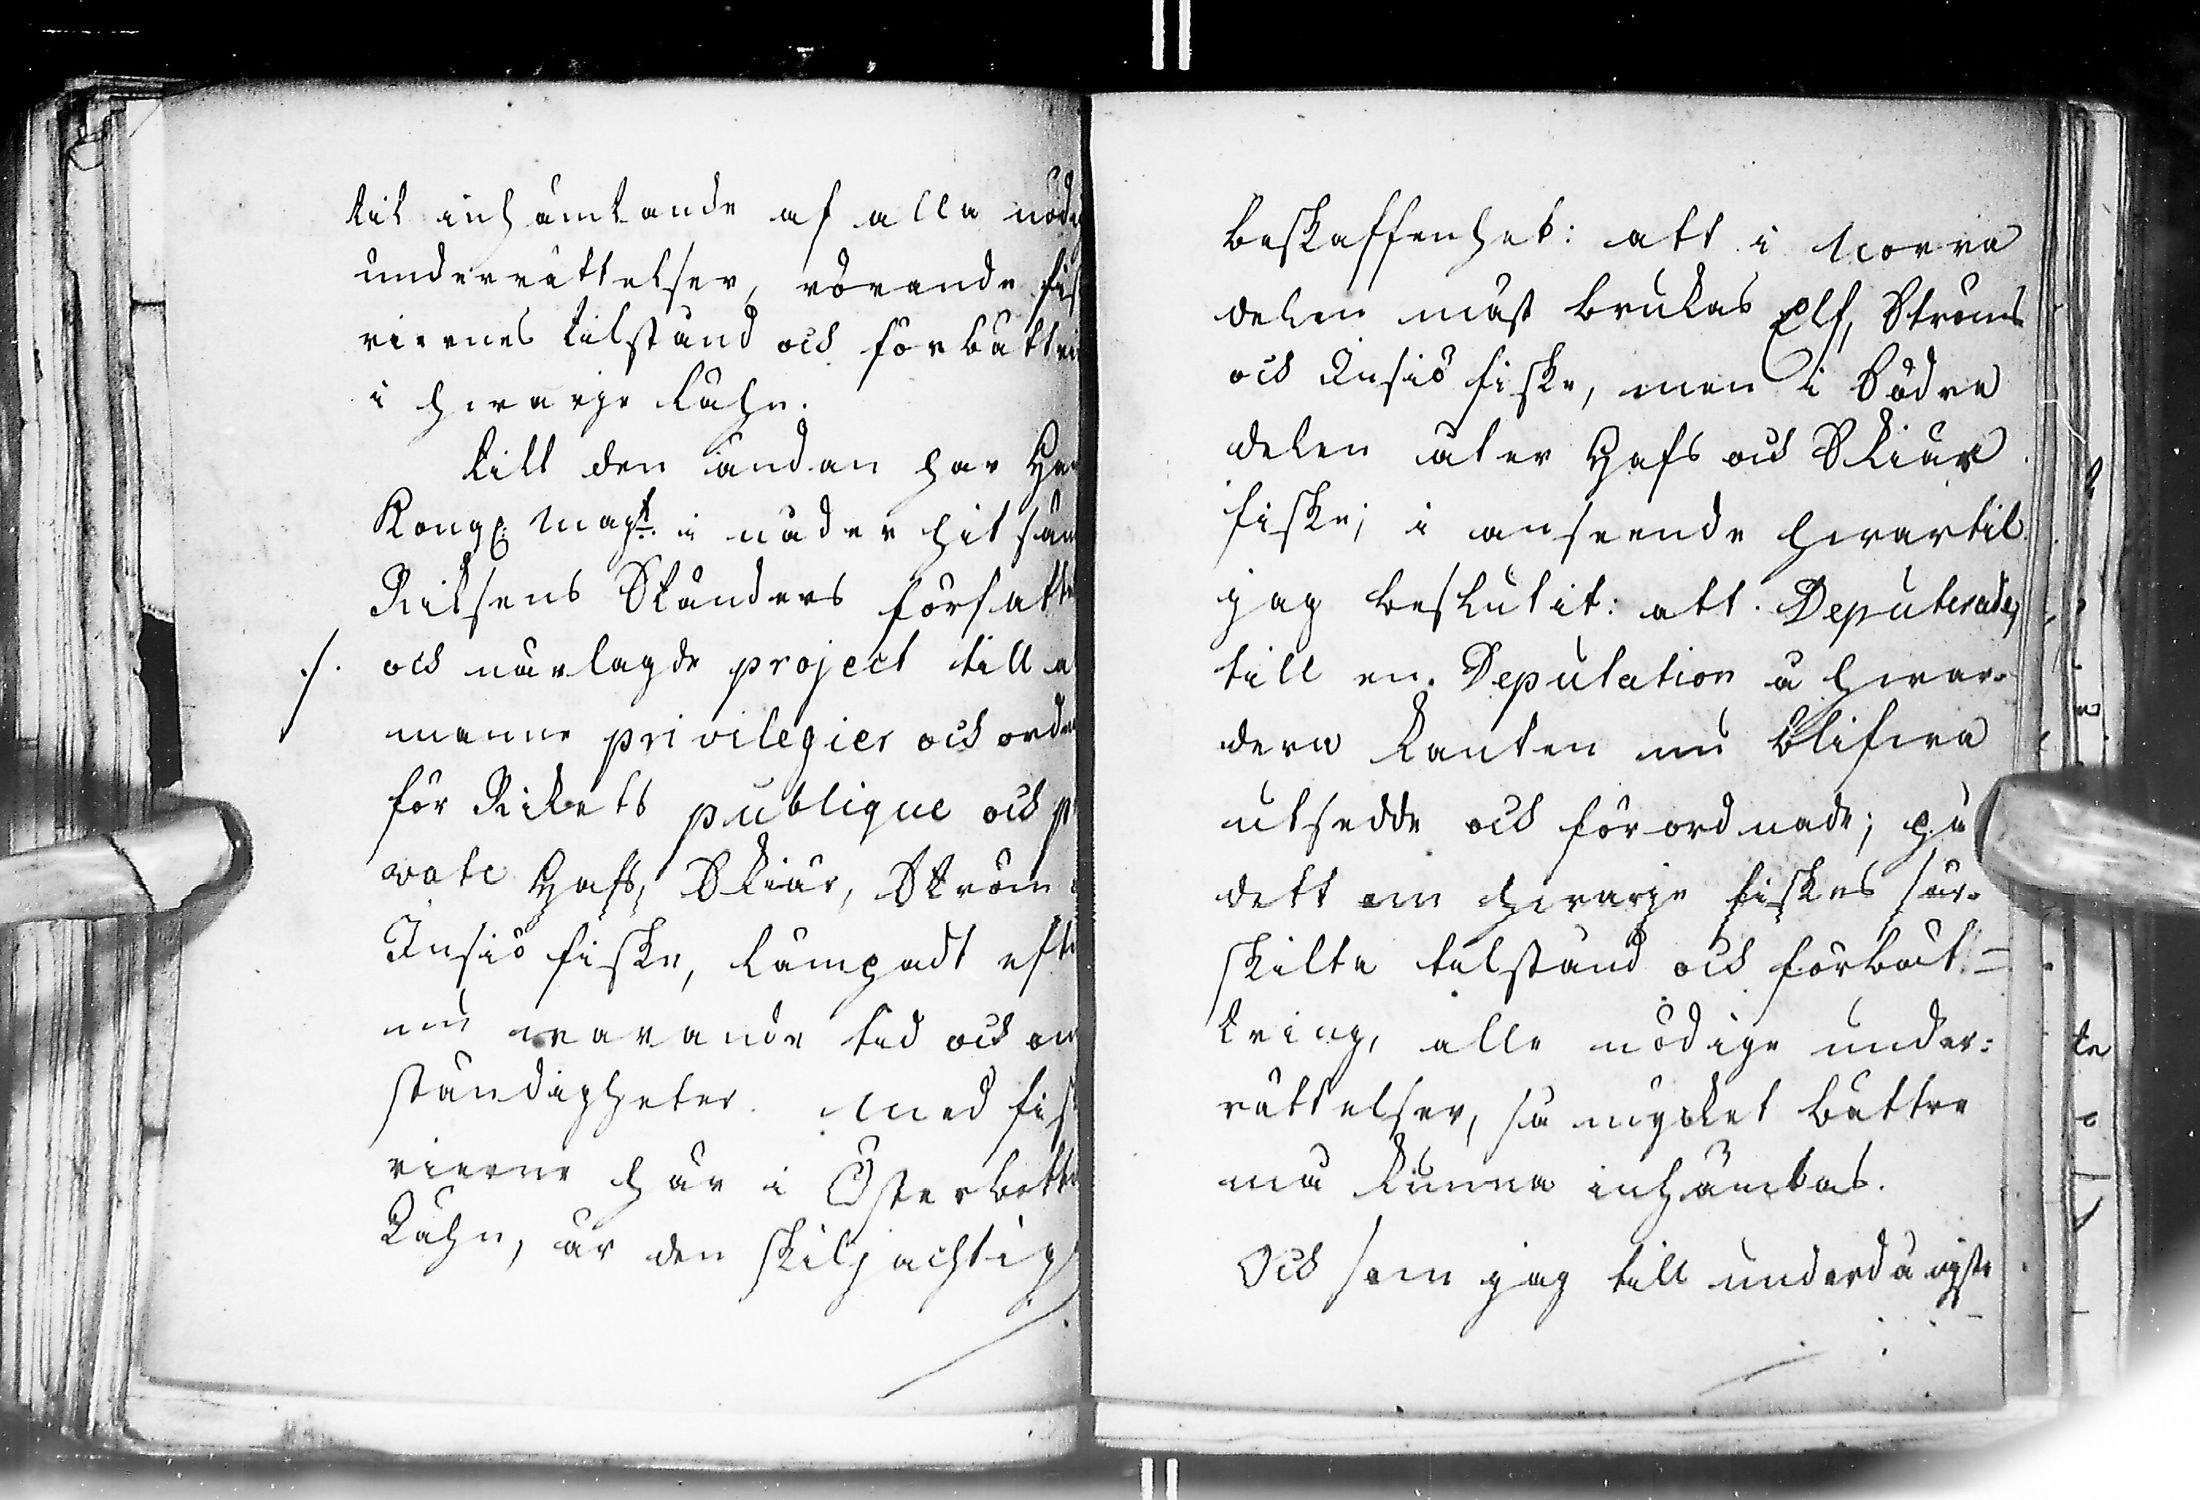 til inhämtande af alla nöd
underrättelser, rörande fis
riernes tilstånd och förbättri
i hwarje Lähn.
Till den ändan har Ha
Kongl: Mayt: i nåder hit sän
Riksens Ständers författ
./. och närlagde project till a
männe privilegier och ord
för Rikets publique och p
wate Hafs, Skiär, Ström
Insiö fiske, lämpadt eft
nu warande tid och om
ständigheter. Med fis
rierne här i Österbott
Lähn, är den skiljachtig
beskaffenhet: att i Norra
delen mäst brukas Elf, Ströms
och Insiö fiske, men i Södra
delen åter Hafs och Skiär
fiske; i anseende hwartil
jag beslutit: att Deputerade,
till en Deputation å hwar-
dera kanten nu blifwa
utsedde och förordnade; på
dett om hwarje fiskes sär-
skilta tilstånd och förbät-
tring, alla nödige under-
rättelser, så mycket bättre
må kunna inhämtas.
Och som jag till underdånigste
te